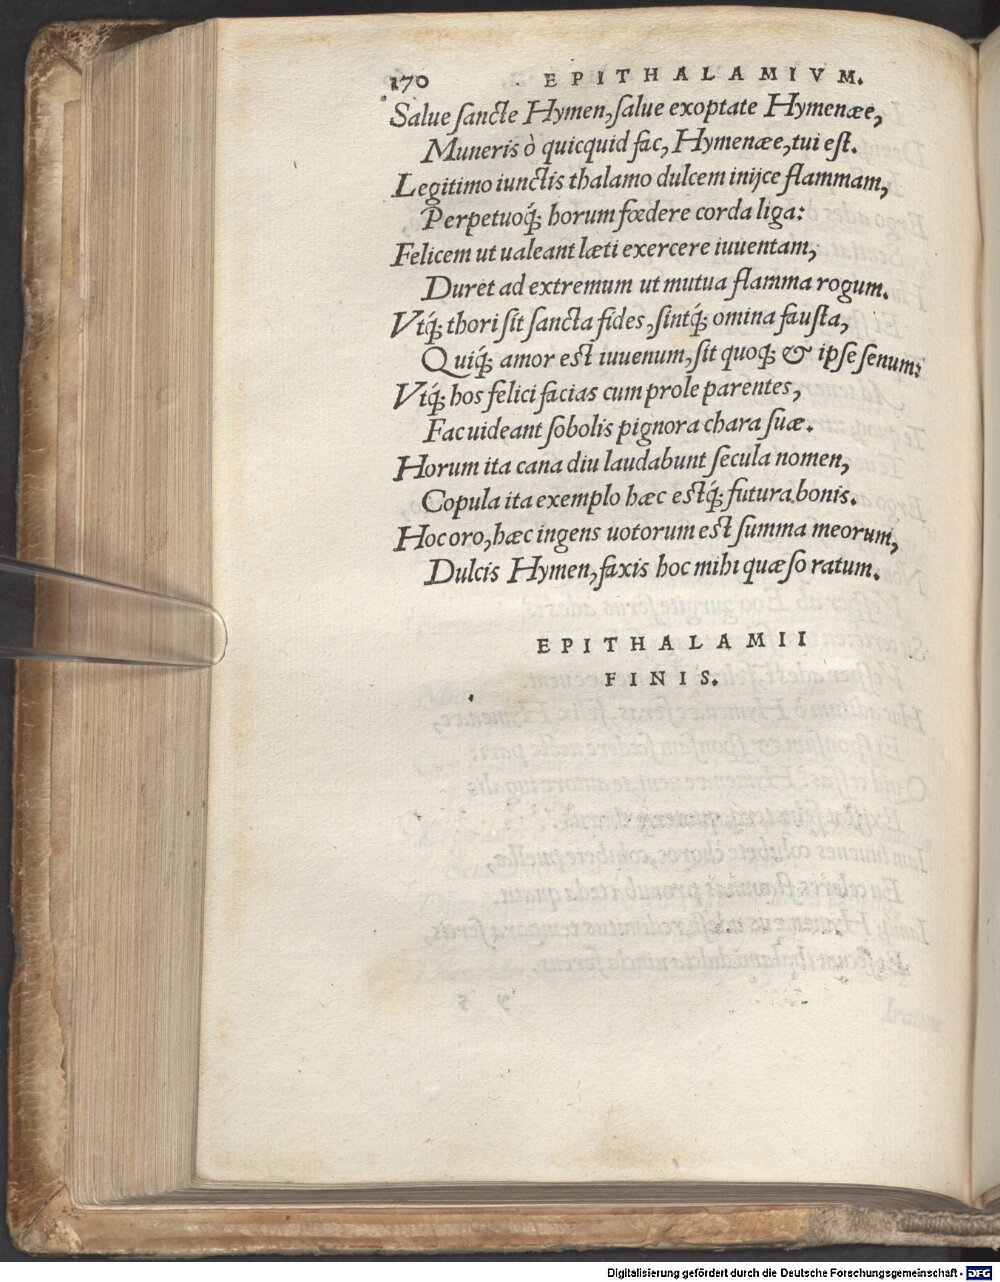 170 EPITHALAMIVM.
Salue sancte Hymen, salue exoptate Hymenæe,
Muneris ò quicquid fac, Hymenæe, tui est.
Legitimo iunctis thalamo dulcem inijce flammam,
Perpetuoq́; horum fœdere corda liga:
Felicem ut ualeant læti exercere iuuentam,
Duret ad extremum ut mutua flamma rogum.
Vtq́; thori sit sancta fides, sintq́; omina fausta,
Quiq́; amor est iuuenum, sit quoq; & ipse senum:
Vtq́; hos felici facias cum prole parentes,
Fac uideant sobolis pignora chara suæ.
Horum ita cana diu laudabunt secula nomen,
Copula ita exemplo hæc estq́; futura bonis.
Hoc oro, hæc ingens uotorum est summa meorum,
Dulcis Hymen, faxis hoc mihi quæso ratum.
EPITHALAMII
FINIS.
Digitalisierung gefördert durch die Deutsche Forschungsgemeinschaft - DFG